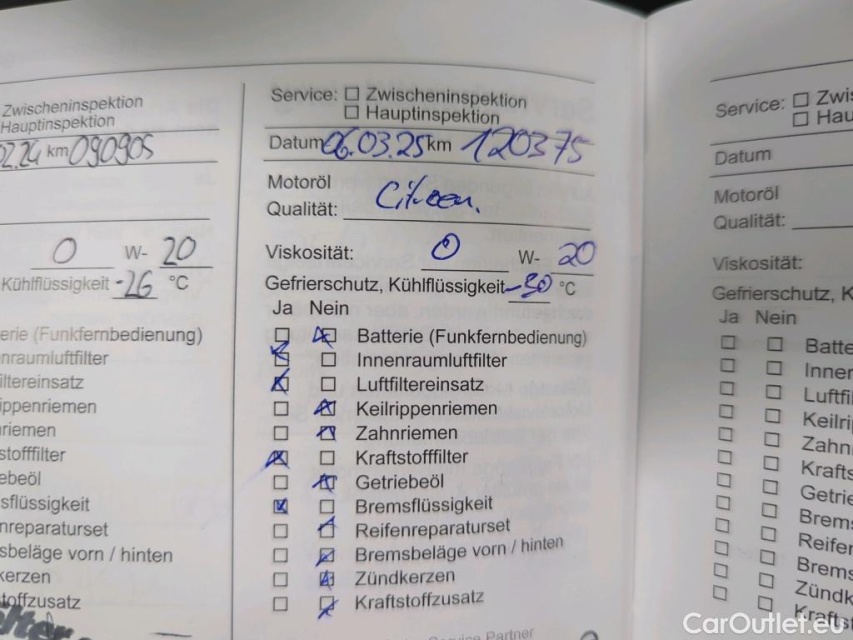 Zwischeninspektion
Hauptinspektion
02.24 km 090905
0 W- 20
Kühlflüssigkeit -26 °C
erie (Funkfernbedienung)
nraumluftfilter
iltereinsatz
ippenriemen
riemen
stofffilter
ebeöl
sflüssigkeit
nreparaturset
sbeläge vorn / hinten
kerzen
toffzusatz
Service: Zwischeninspektion
Hauptinspektion
Datum 06.03.25 km 120375
Motoröl
Qualität: Citroen.
Viskosität: 0 W- 20
Gefrierschutz, Kühlflüssigkeit -30 °C
Ja Nein
Batterie (Funkfernbedienung)
Innenraumluftfilter
Luftfiltereinsatz
Keilrippenriemen
Zahnriemen
Kraftstofffilter
Getriebeöl
Bremsflüssigkeit
Reifenreparaturset
Bremsbeläge vorn / hinten
Zündkerzen
Kraftstoffzusatz
Service Partner
Service: Zwi
Hau
Datum
Motoröl
Qualität:
Viskosität:
Gefrierschutz, K
Ja Nein
Batte
Innen
Luftfi
Keilri
Zahn
Krafts
Getrie
Brems
Reifen
Brems
Zündk
Krafts
CarOutlet.eu